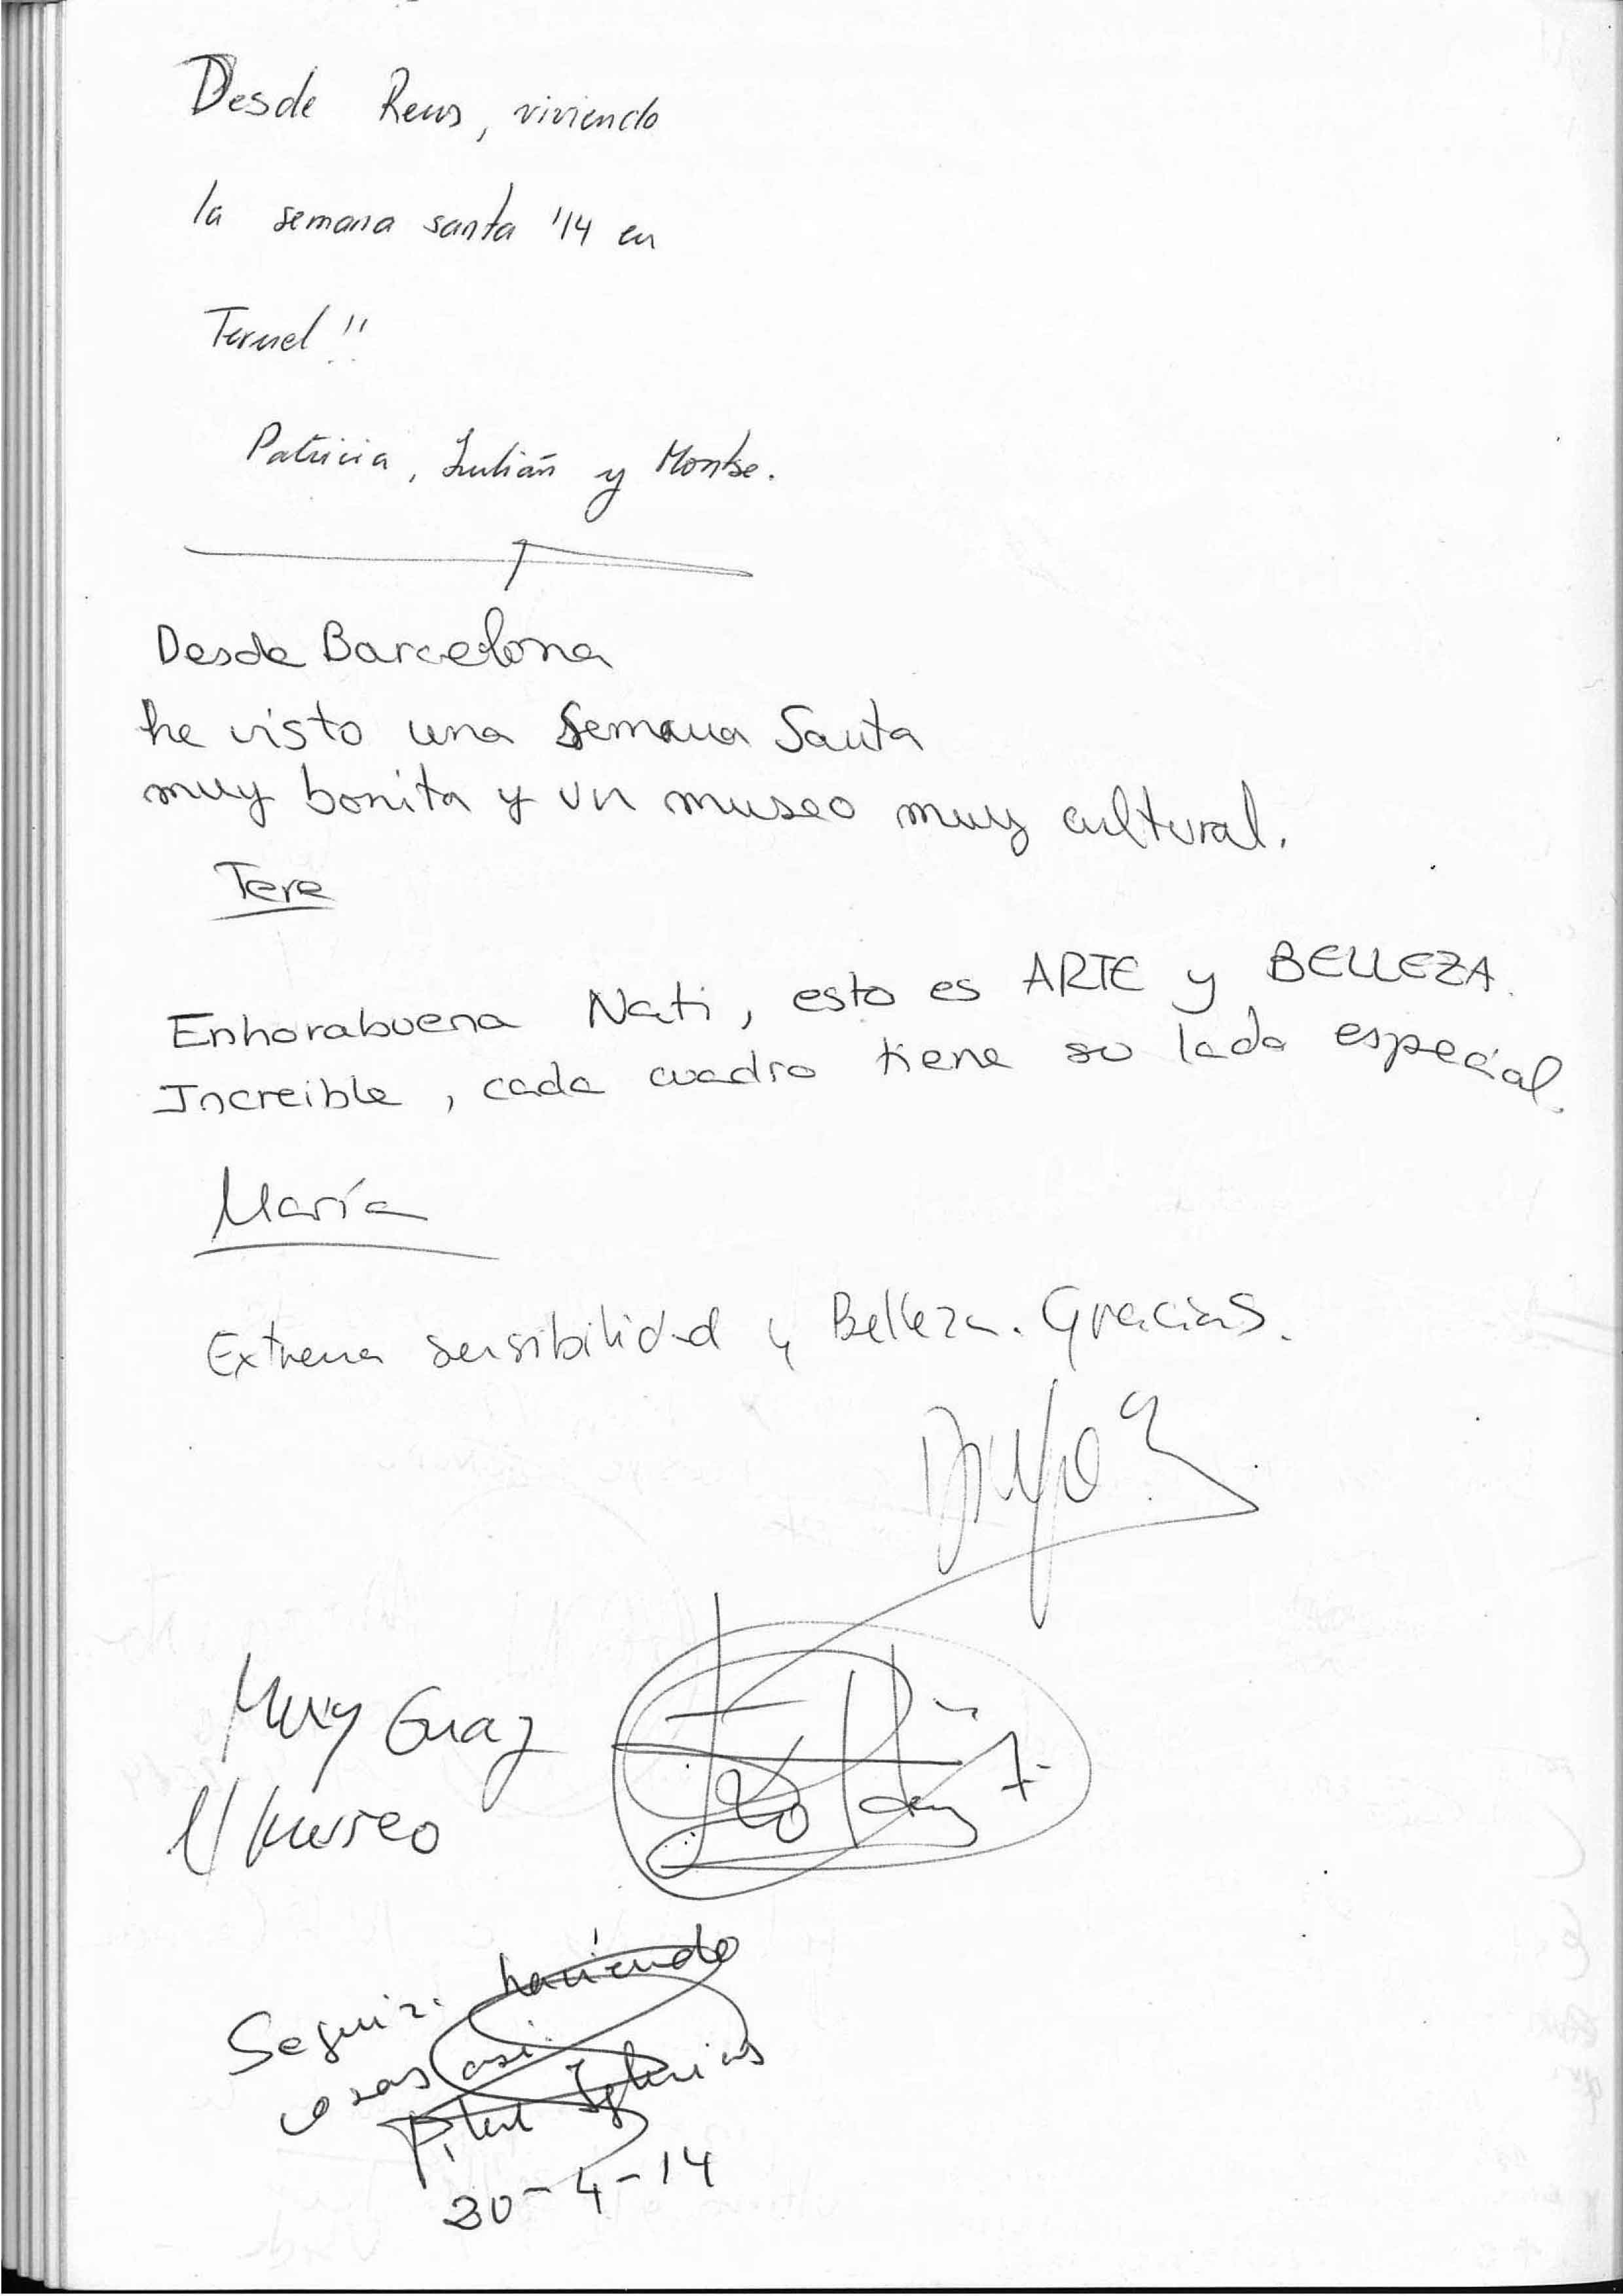 Desde Reus, viviendo
la semana santa '14 en
Teruel!!
Patricia, Julián y Montse.
Desde Barcelona
he visto una Semana Santa
muy bonita y un museo muy cultural.
Tere
Enhorabuena Nati, esto es ARTE y BELLEZA.
Increible, cada cuadro tiene su lado especial.
María
Extrema sensibilidad y Belleza. Gracias.
Muy
el Museo
Seguir haciendo
cosas así.
Pilar Iglesias
20-4-14